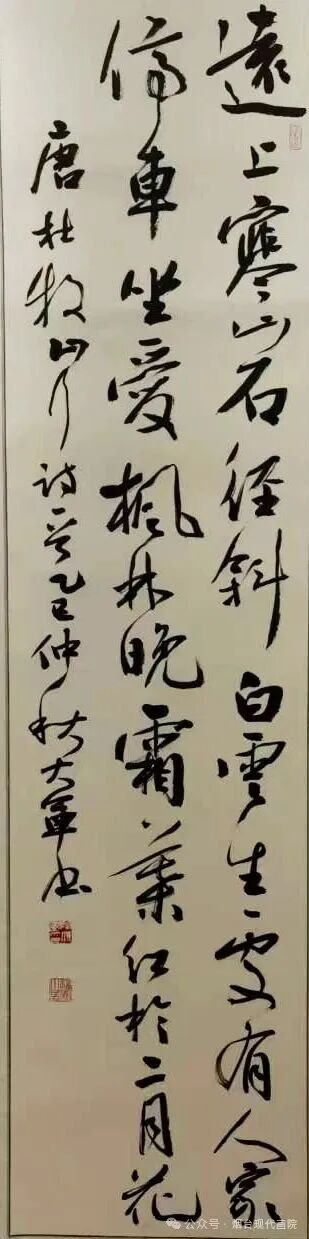 遠上寒山石徑斜白雲生處有人家
停車坐愛楓林晚霜葉紅於二月花
唐杜牧山行詩一首乙巳仲秋大軍书
公众号·烟台现代画院